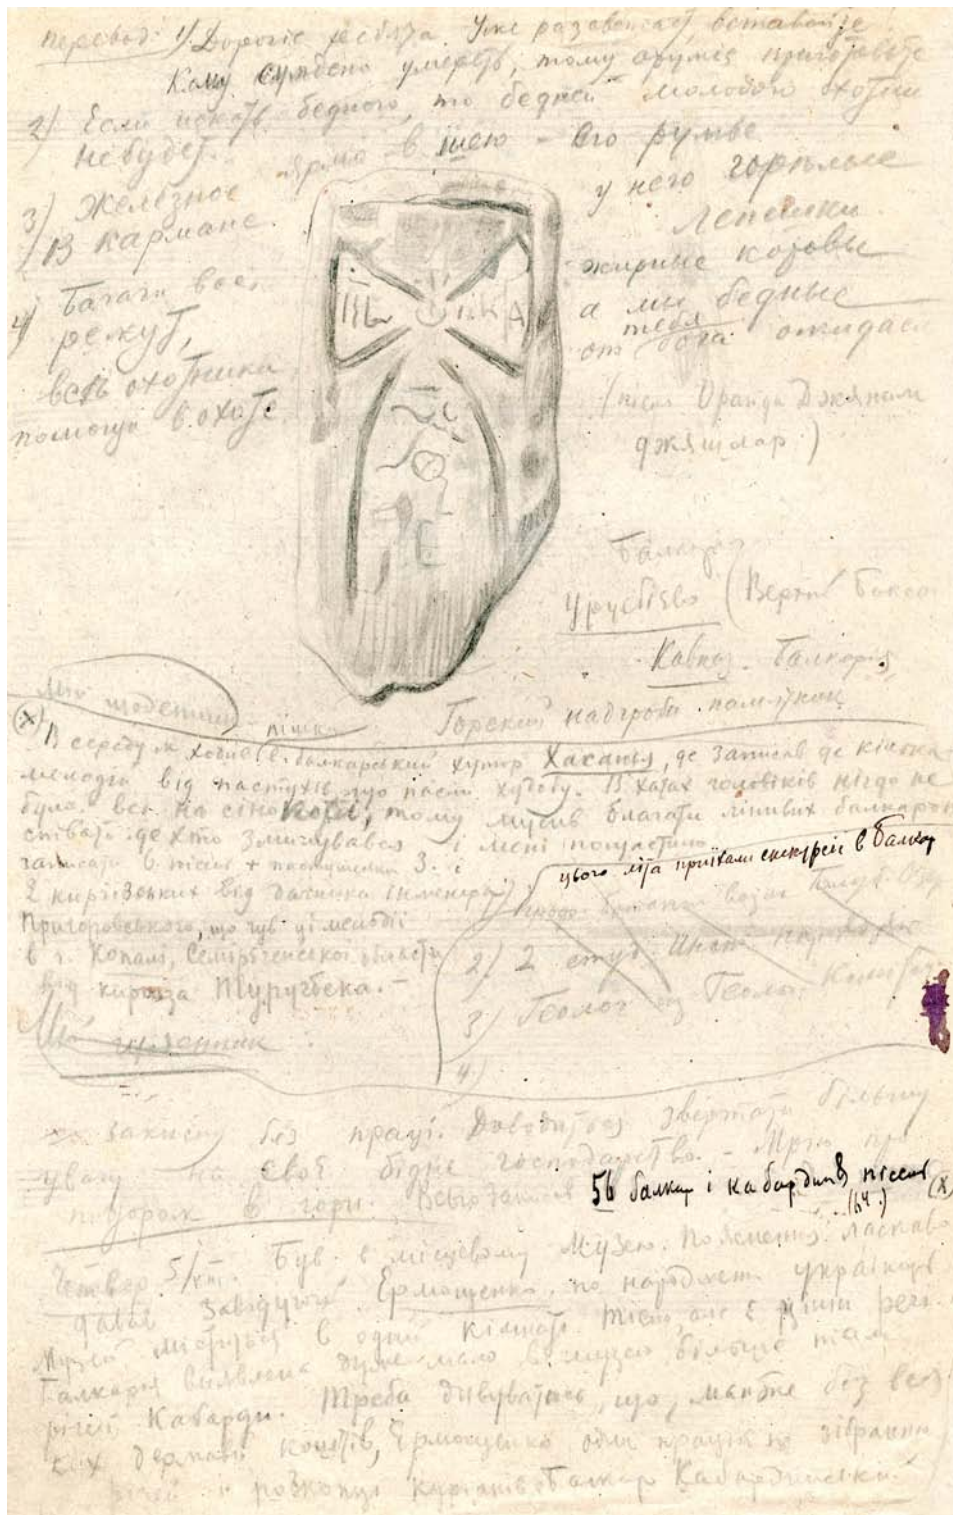 перевод: 1) Дорогие ребята. Уже разсветает, вставайте
Кому суждено умереть, тому оружия приготовьте
2) Если искать бедного, то бедней молодого охотни
небудет.
3) Железное ярмо в шею – его румве
В кармане. у него горелые
лепешки
4) Багачи все жирные коровы
режут, а мы бедные
весь охотники от тебя бога ожидаем
помощи в охоте
(пісня Орайда Джаным
джашлар.)
Балкар
Урусбієво (Верхній Баксан
Кавказ. Балкарія,
Горский надгробн. памятник
Мій щоденник
(х) В середу я ходив пішки в балкарський хутор Хасанья, де записав де кілька
мелодій від пастухів, що пасли худобу. В хатах чоловіків нігде не
було. всі на сінокосі, тому мусив благати лінивих балкарок
співати де хто змилувався і мені пощастило
записати 6 пісень + 3. і
2 киргізських від дачника інженера
Пригоровського, що чув ці мелодії
в г. Копалі, Семиріченської области
від киргіза Туругбека. –
цього літа приїхали екскурсії в Балкар
1)
2) 2 студ. Инст.
3) Геолог из Геолог. Комитет
4)
Мій щоденник
без праці. Доводиться звертати більшу
увагу на своє бідне господарство. – Мрію про
подорож в гори. Всього записав 56 балкар і кабардинів пісень
(х)
Четвер 5/VIII. Був в місцевому Музею. Пояснення ласкаво
давав Завідуючий Ермощенко по народжен. українець
Музей міститься в одній кімнаті. Тісно, але є цінні речі.
Балкарія виявлена дуже мало в музею більше там
річей Кабарди. Треба дивуватись, що, майже без вся
ких держави коштів, Ермощенко один працює по зібранню
річей і розкопці курганів Балкар Кабардинськи.